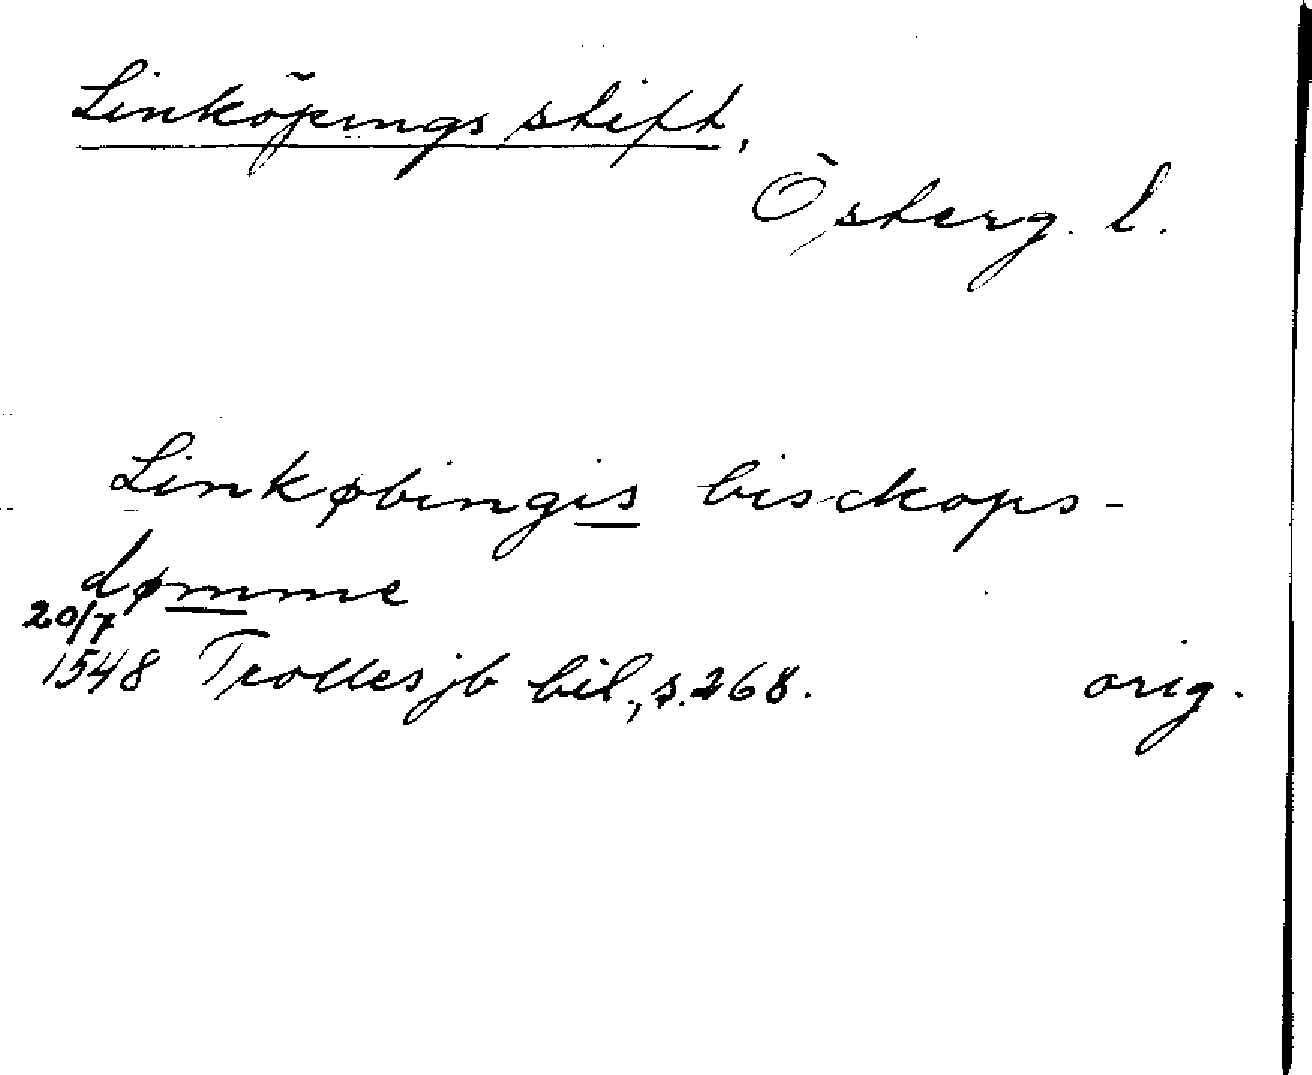 Linköpings stift,
Österg. l.
Linkøbingis bisckops-
dømme
20/7
1548 Trolles jb bil., s. 268. orig.